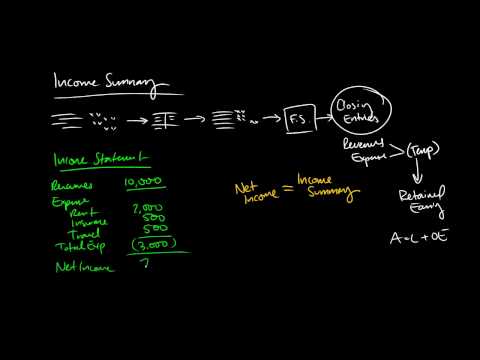 Income Summary
F.S.
Closing
Entries
Revenues
Expense
(Temp)
Retained
Earning
A=L+OE
Net
Income
=
Income
Summary
Income Statement
Revenues 10,000
Expense
Rent 2,000
Insurance 500
Travel 500
Total Exp (3,000)
Net Income ?